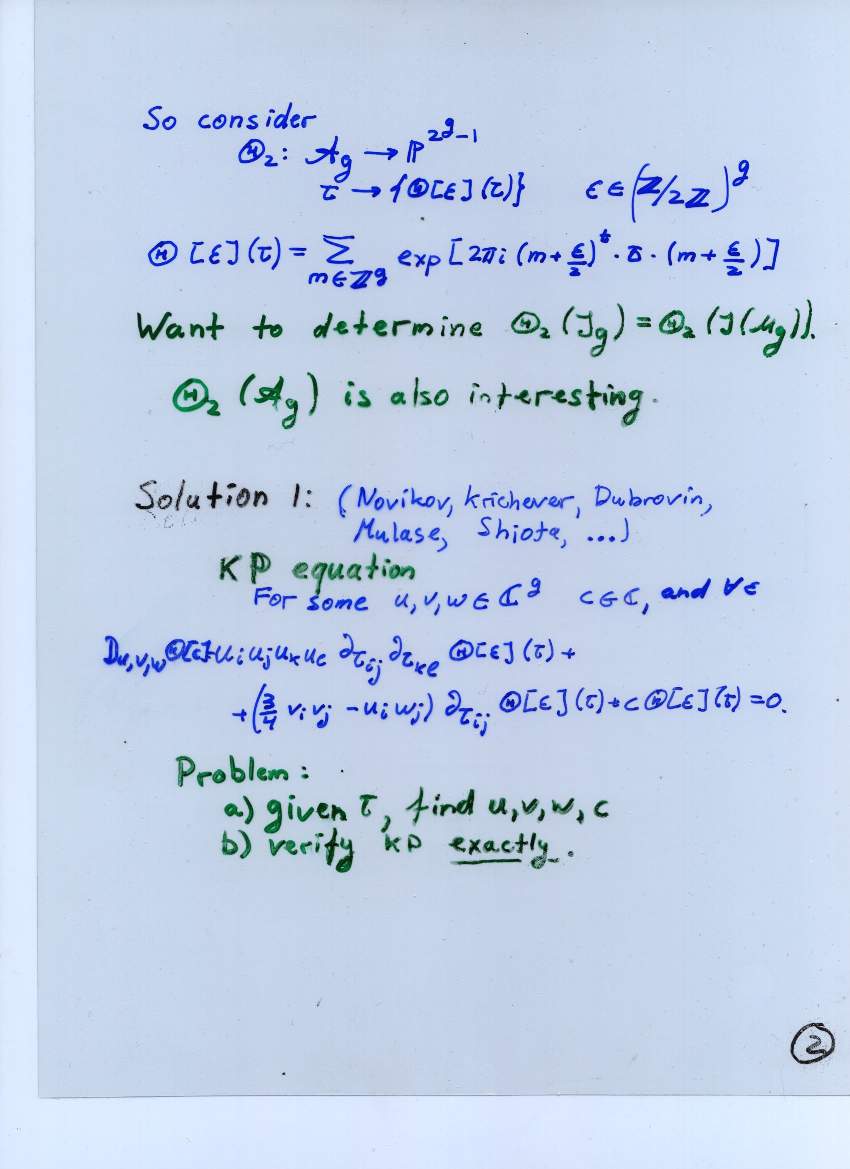 So consider
Θ₂: 𝒜_g → ℙ^{2^g-1}
τ → {Θ[ε](τ)} ε ∈ (ℤ/2ℤ)^g
Θ[ε](τ) = Σ_{m∈ℤ^g} exp[2πi (m+ε/2)^t · τ · (m+ε/2)]
Want to determine Θ₂(J_g) = Θ₂(J(M_g)).
Θ₂(𝒜_g) is also interesting.
Solution 1: (Novikov, Krichever, Dubrovin,
Mulase, Shiota, ...)
KP equation
For some u,v,w ∈ ℂ^g c ∈ ℂ, and ∀ε
D_{u,v,w}Θ[ε]=u_i u_j u_k u_l ∂_{τ_ij} ∂_{τ_kl} Θ[ε](τ) +
+(3/4 v_i v_j - u_i w_j) ∂_{τ_ij} Θ[ε](τ)+cΘ[ε](τ)=0.
Problem:
a) given τ, find u,v,w,c
b) verify KP exactly.
2